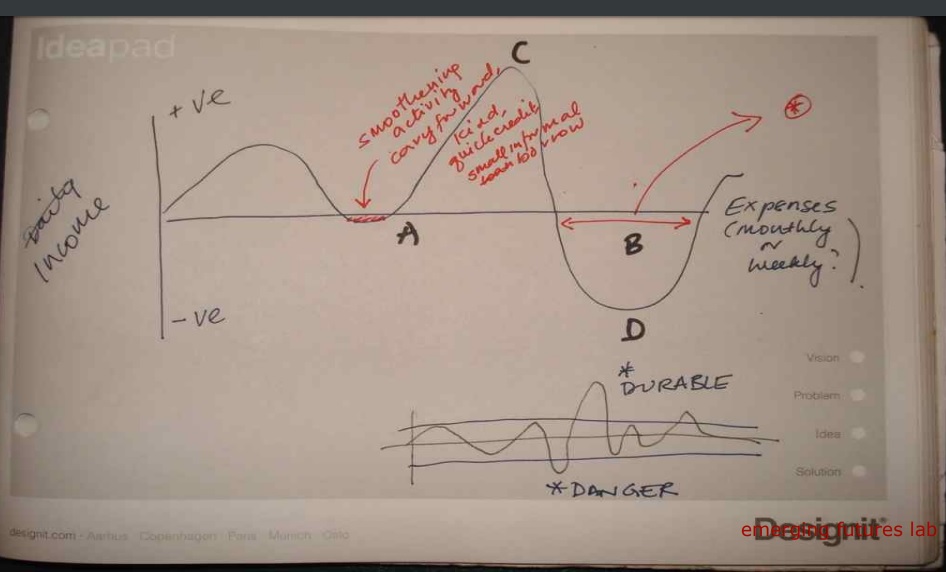 Ideapad
+ ve
Daily
Income
- ve
smoothening
activity
carry forward,
kind,
quick credit
small informal
loan
borrow
C
*
A
B
D
Expenses
(monthly
or
weekly?)
Vision
Problem
Idea
Solution
*
DURABLE
*DANGER
designit.com · Aarhus · Copenhagen · Paris · Munich · Oslo
Designit®
emerging futures lab